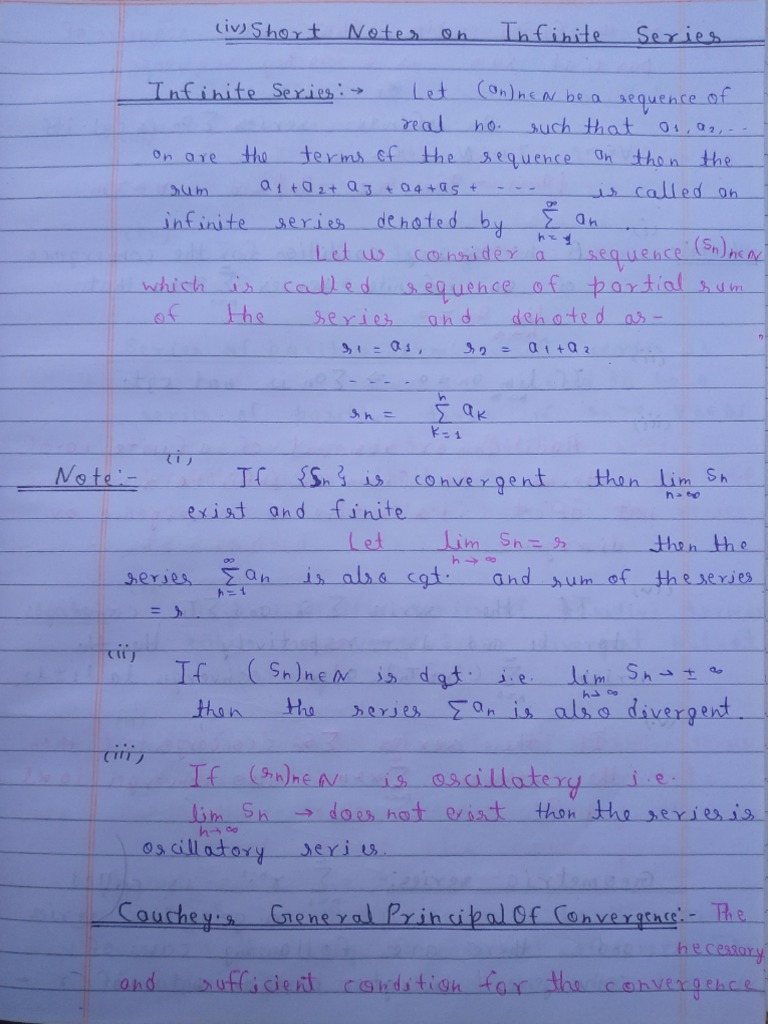 (iv) Short Notes on Infinite Series
Infinite Series:→ Let (an)n∈N be a sequence of
real no. such that a1, a2, ...
an are the terms of the sequence an then the
sum a1+a2+a3+a4+a5+ - - - is called an
infinite series denoted by ∞Σn=1 an .
Let us consider a sequence (Sn)n∈N
which is called sequence of partial sum
of the series and denoted as-
s1 = a1, s2 = a1+a2
- - - - .
sn = nΣK=1 aK
Note:- (i) If {Sn} is convergent then lim n→∞ Sn
exist and finite
Let lim n→∞ Sn = s then the
series ∞Σn=1 an is also cgt. and sum of the series
= s.
(ii) If (Sn)n∈N is dgt. i.e. lim n→∞ Sn → ± ∞
then the series Σan is also divergent.
(iii) If (sn)n∈N is oscillatery i.e.
lim n→∞ Sn → does not exist then the series is
oscillatory series.
Cauchey's General Principal Of Convergence:- The
necessary
and sufficient condition for the convergence